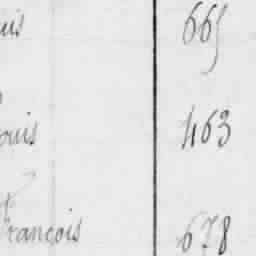 uis 665
ouis 463
François 678